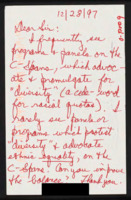 12/28/97
Dear Sir:
I frequently see
programs & panels, on the
C-Spans, which advoc-
ate & promulgate for
"diversity" (a code-word
for racial quotas). I
rarely see panels or
programs which protest
diversity & advocate
ethnic equality, on the
C-Spans. Can you improve
the balance? Thank you.